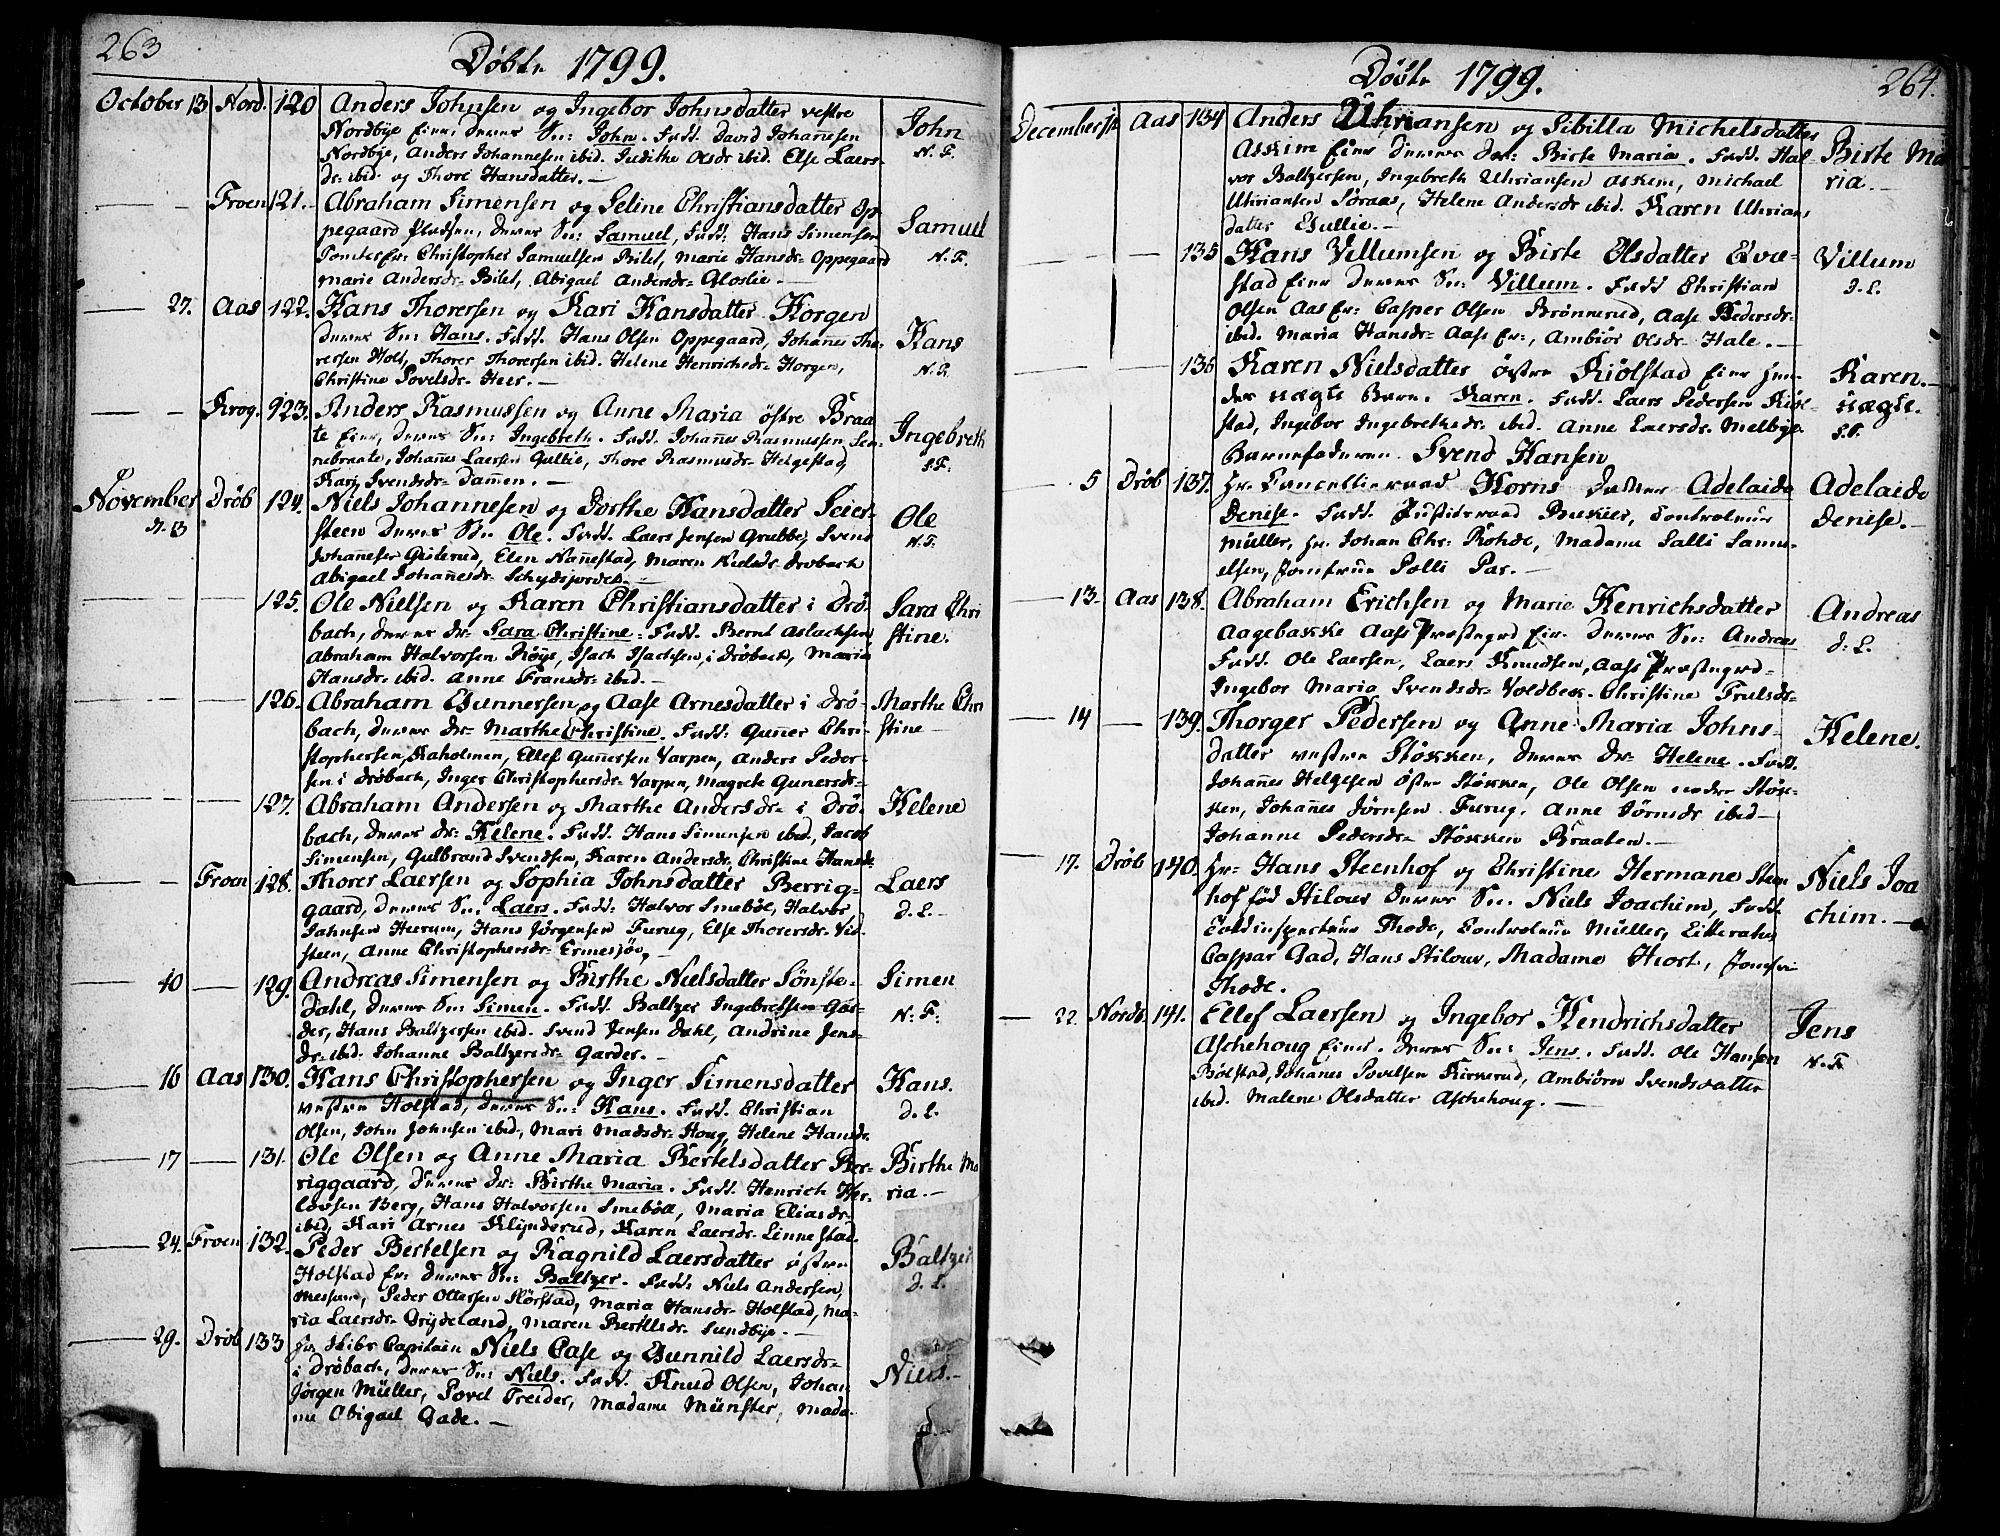 263
Döbte 1799.
October 13 Nord. 120 Anders Johnsen og Ingebor Johnsdatter vestre
Nordbye Eier, deres Sn: John. Fadd. David Johannesen
Nordbye, Anders Johannesen ibid. Judithe Olsdr ibid. Else Laers-
dr. ibid. og Thore Hansdatter.—
John
N. F.
Froen 121. Abraham Simensen og Seline Christiansdatter Op-
pegaard Pladsen, deres Sn: Samuel, Fadd: Hans Simensen
Tomter Er: Christopher Samuelsen Bilet, Marie Hansdr. Oppegaard
Marie Andersdr. Bilet, Abigael Andersdr. Gloslie.—
Samuel
N. F.
27. Aas 122. Hans Thorersen og Kari Hansdatter Horgen
deres Sn: Hans. Fadd. Hans Olsen Oppegaard, Johannes Tho-
rersen Holt, Thorer Thorersen ibid. Helene Henrichsdr. Horgen,
Christine Povelsdr. Heer.—
Hans
N. F.
Krog. 923. Anders Rasmussen og Anne Maria östre Braa-
te Eier, deres Sn: Ingebreth. Fadd. Johannes Rasmussen
nebraate, Johannes Laersen Gullie, Thore Rasmusdr. Helgestad,
Kari Svendsdr. Dammen.—
Ingebreth
S. F.
November d. 3 Dröb 124. Niels Johannesen og Dorthe Hansdatter Seier-
steen deres Sn: Ole. Fadd. Laers Jensen Grubbe, Svend
Johannesen Guterud, Elen Nannestad, Maren Nielsdr. Drobach
Abigael Johannesdr. Schydsjordet.
Ole
N. F.
125. Ole Nielsen og Karen Christiansdatter i Drö-
bach, deres dr. Sara Christine. Fadd. Bernt Aslachsen
Abraham Halvorsen Röys, Isach Isachsen, i Dröbach, Maria
Hansdr. ibid. Anne Fransdr. ibid.—
Sara Chri
stine.
126. Abraham Gunnersen og Aase Arnesdatter i Drö-
bach, deres dr: Marthe Christine. Fadd. Gunner Chri-
stophersen Kaholmen, Ellef Gunnersen Varpen, Anders Peder-
sen i Dröbach, Inger Christophersdr. Varpen, Magrete Gunersdr.
Marthe Chri
stine
127. Abraham Andersen og Marthe Andersdr. i Drö-
bach, deres dr: Helene. Fadd. Hans Simensen ibid. Jacob
Simensen, Gulbrand Svendsen, Karen Andersdr. Christine Hansdr.
Helene
Froen 128. Thorer Laersen og Sophia Johnsdatter Berrig-
gaard, deres Sn: Laers. Fadd: Halvor Smeböl, Halvor
Johnsen Hurum, Hans Jörgensen Furug, Else Thorersdr. Vid-
steen, Anne Christophersdr. Ermesjöe.—
Laers
d. L.
10 129. Andreas Simensen og Birthe Nielsdatter Sönste-
Dahl, deres Sn: Simen. Fadd. Baltzer Ingebretsen Gar-
der, Hans Baltzersen ibid. Svend Jensen Dahl, Andrine Jens-
dr. ibid. Johanne Baltzersdr. Garder.—
Simen
N. F.
16 Aas 130. Hans Christophersen og Inger Simensdatter
vestre Holstad, deres Sn: Hans. Fadd. Christian
Olsen, John Johnsen ibid., Mari Madsdr. Houg, Helene Hansdr.
Hans.
d. L.
17 131. Ole Olsen og Anne Maria Bertelsdatter Ber-
riggaard, deres dr: Birthe Maria. Fadd. Henrich Her-
lovsen Berg, Hans Halvorsen Smeböll, Maria Eliasdr.
ibid. Kari Arnes Klynderud, Karen Laersdr. Linnestad.
Birthe Ma
ria.—
24. Froen 132. Peder Bertelsen og Ragnild Laersdatter östre
Holstad Er: deres Sn: Baltzer. Fadd: Niels Andersen,
Messum, Peder Ottersen Skörstad, Maria Hansdr. Holstad, Ma-
ria Laersdr. Grydeland, Maren Bertelsdr. Sundbye.—
Baltzer
d. L.
29. Dröb 133 Hr. Skibs Capitain Niels Case og Gunnild Laersdr.
i Dröbach, deres Sn: Niels. Fadd. Knud Olsen, Johan
Jörgen Müller, Povel Treider, Madame Münster, Mada-
me Abigael Gade.—
Niels.—
264.
Döbte 1799.
December 1ste Aas 134 Anders Uhriansen og Sibilla Michelsdatter
Askim Eier deres dr: Birte Maria. Fadd. Hal
vor Baltzersen, Ingebreth Uhriansen Askem, Michael
Uhriansen Söraas, Helene Andersdr ibid. Karen Uhrians
datter Gullie.—
Birte Ma
ria.—
135 Hans Villumsen og Birte Olsdatter Qvæ-
stad Eier deres Sn: Villum. Fadd Christian
Olsen Aas Er: Casper Olsen Brönnerud, Aase Pedersdr.
ibid. Maria Hansdr. Aase Er:, Ambiör Olsdr. Hale.—
Villum
d. L.
136 Karen Nielsdatter östre Kiölstad Eier hen-
des uægte Barn. Karen. Fadd. Laers Pedersen Kiöl-
stad, Ingebor Ingebrethsdr. ibid. Anne Laersdr. Melbye.
Barnefaderen Svend Hansen
Karen.—
uægte.
S. F.
5 Dröb 137. Hr. Cancellieraad Horns datter Adelaide
Denise. Fadd. Justitsraad Buskier, Controleur
Müller, Hr. Johan Chr. Rohde, Madame Salli Samu-
elsen, Jomfrue Polli Par.—
Adelaide
Denise.—
13. Aas 138. Abraham Erichsen og Marie Henrichsdatter
Aagebakke Aass Præstegrd Eier. deres Sn: Andreas
Fadd. Ole Laersen, Laers Knudsen, Aass Præstegrd.
Ingebor Maria Svendsdr. Voldbek. Christine Trulsdr.
Andreas
d. L.
14 139. Thorger Pedersen og Anne Maria Johns-
datter vestre Stökken, deres dr: Helene. Fadd.
Johannes Helgesen östre Stökken, Ole Olsen nedre Stök-
ken, Johannes Jörnsen Furug. Anne Jörnsdr ibid—
Johanne Pedersdr. Stökken Braaten.—
Helene.
17. Dröb 140. Hr. Hans Steenhof og Christine Hermane Steen
hof föd Stilour deres Sn. Niels Joachim, Fadd.
Toldinspecteur Thode, Controleur Müller, Litteratus
Caspar Gad, Hans Stilour, Madame Hiort, Jomfru
Thode.
Niels Joa
chim.—
22. Nordb. 141. Ellef Laersen og Ingebor Hendrichsdatter
Aschehoug Eier. deres Sn: Jens. Fadd. Ole Hansen
Bölstad, Johanes Povelsen Kirkerud, Ambiörn Svendsdatter
ibid. Malene Olsdatter Aschehoug.—
Jens
N. F.